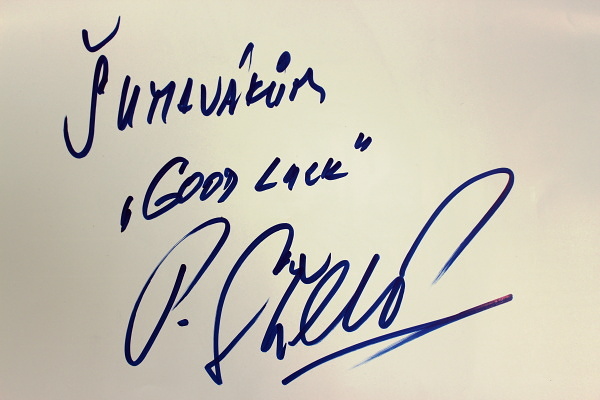 Šumavákům
„GOOD LUCK"
P.